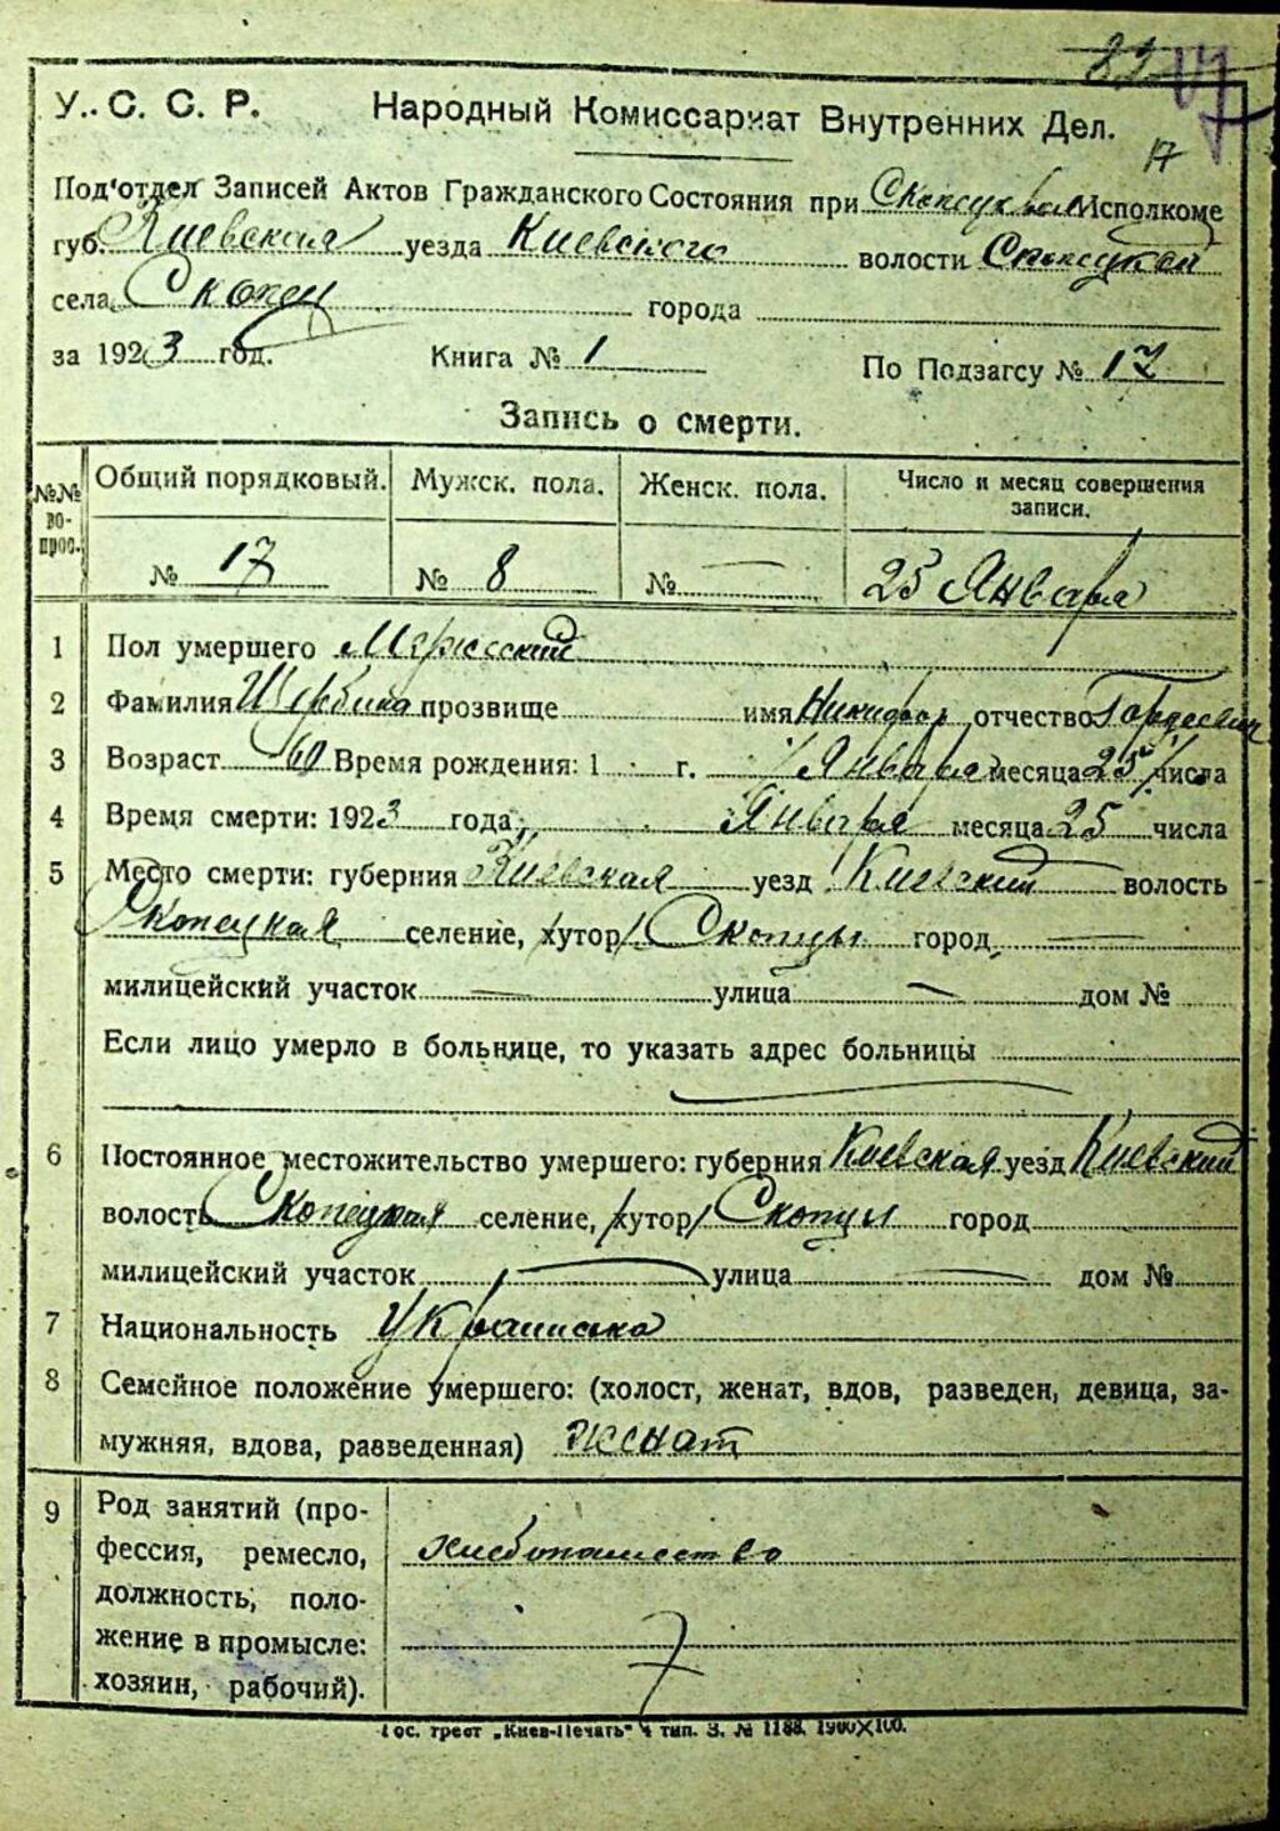 82 17
У. С. С. Р. Народный Комиссариат Внутренних Дел.
17
Под'отдел Записей Актов Гражданского Состояния при Исполкоме
губ. Киевская уезда Киевского волости
села Скопец города
за 1923 год. Книга № 1 По Подзагсу № 17
Запись о смерти.
№№ вопрос. Общий порядковый. Мужск. пола. Женск. пола. Число и месяц совершения
записи.
№ 17 № 8 № — 25 Января
1 Пол умершего Мужеский
2 Фамилия Щербина прозвище имя Никифор отчество Гордеевич
3 Возраст 60 Время рождения: 1 г. Января месяца 25 числа
4 Время смерти: 1923 года, Января месяца 25 числа
5 Место смерти: губерния Киевская уезд Киевский волость
Скопецкая селение, хутор Скопцы город —
милицейский участок — улица — дом №
Если лицо умерло в больнице, то указать адрес больницы
—
6 Постоянное местожительство умершего: губерния Киевская уезд Киевский
волость Скопецкая селение, хутор Скопцы город
милицейский участок — улица — дом №
7 Национальность
8 Семейное положение умершего: (холост, женат, вдов, разведен, девица, за-
мужняя, вдова, разведенная) женат
9 Род занятий (про-
фессия, ремесло, хлебопашество
должность, поло-
жение в промысле:
хозяин, рабочий).
Гос. трест „Киев-Печать" 4 тип. З. № 1188. 1900×100.